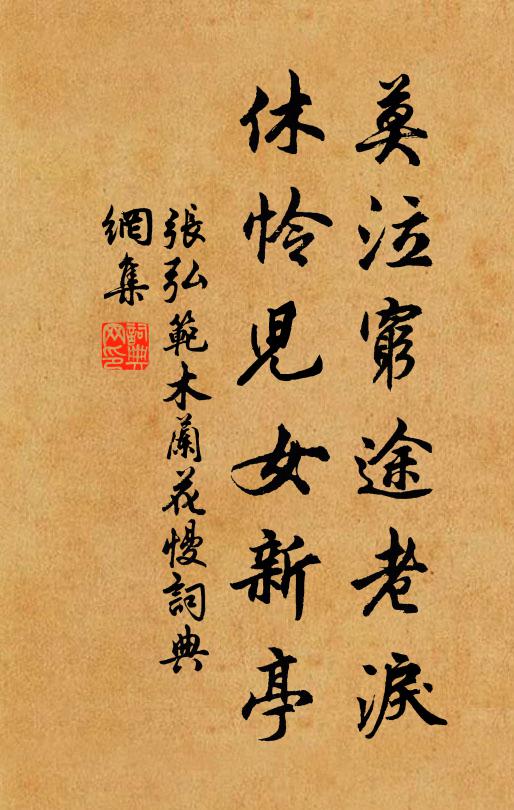 莫泣窮途老淚
休怜兒女新亭
張弘範木蘭花慢詞典
網集
詞典
网印